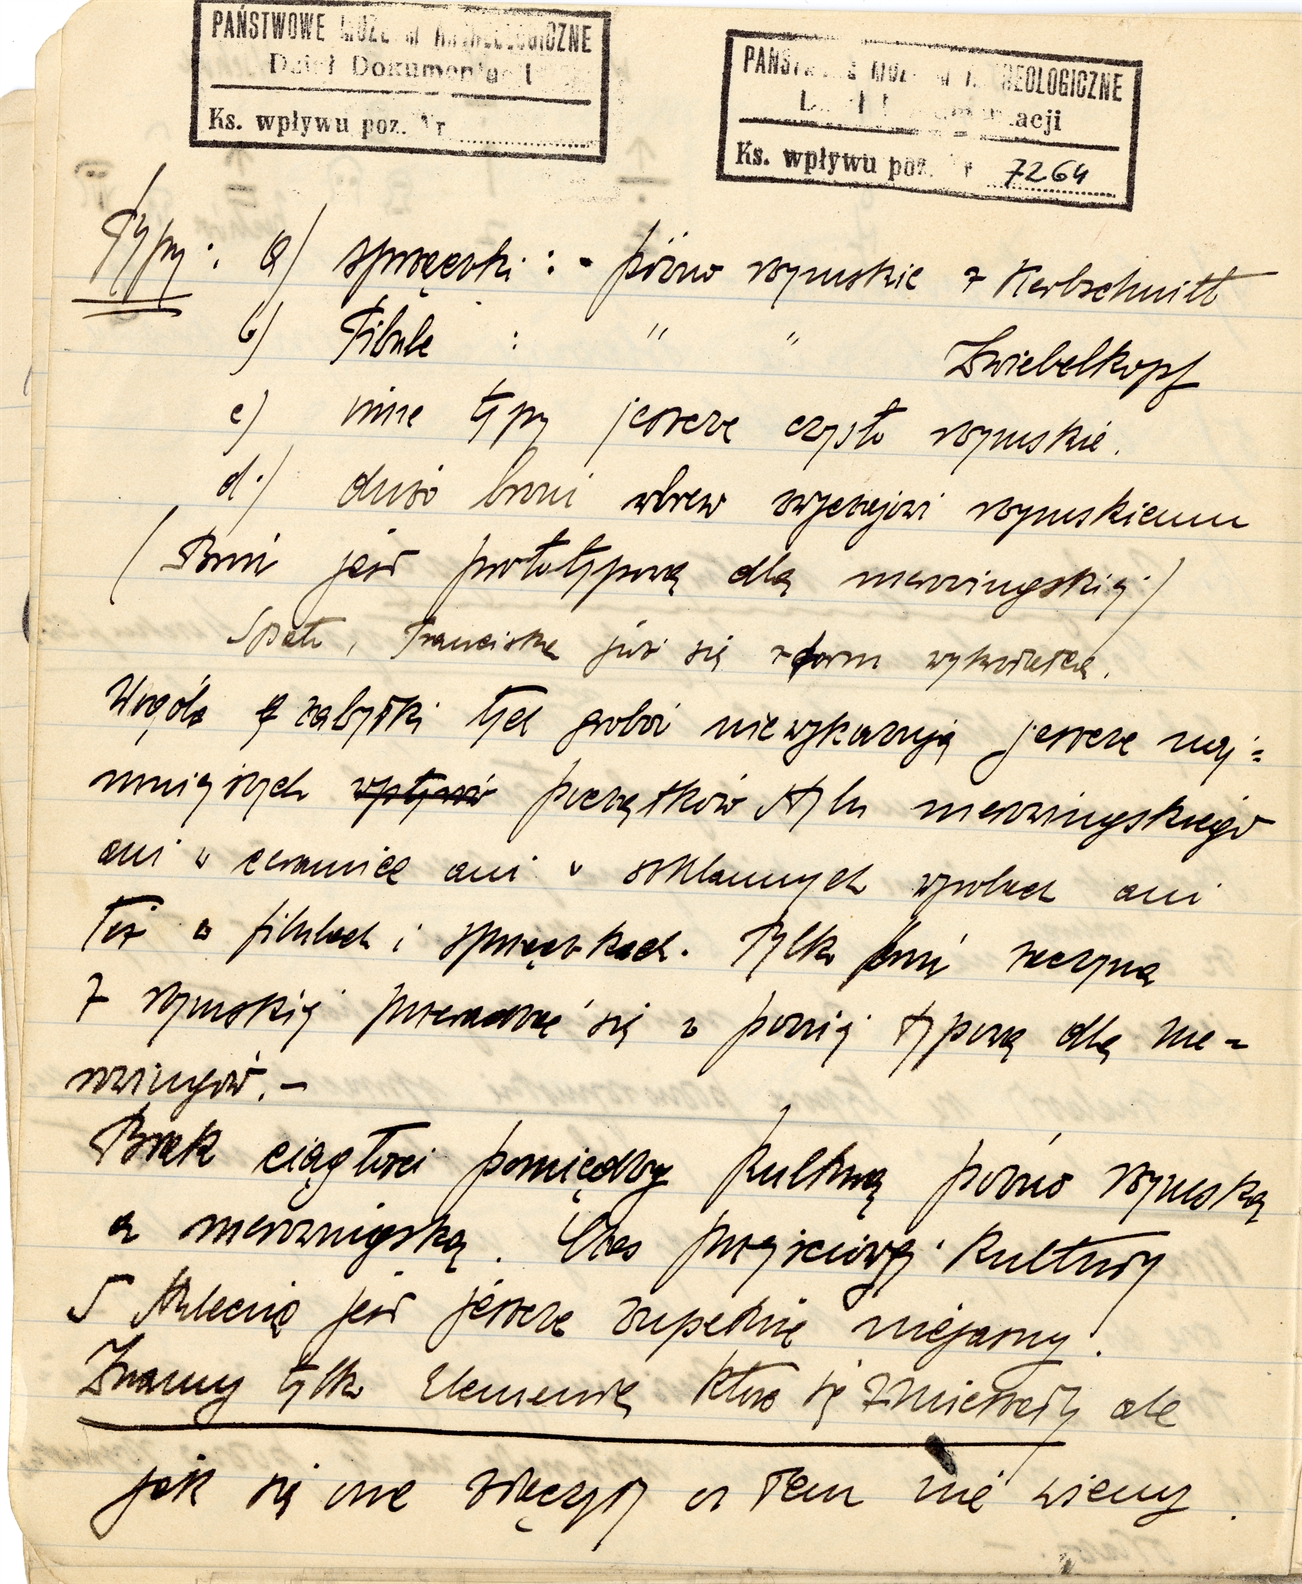 PAŃSTWOWE MUZEUM ARCHEOLOGICZNE
Dział Dokumentacji
Ks. wpływu poz. Nr
PAŃSTWOWE MUZEUM ARCHEOLOGICZNE
Dział Dokumentacji
Ks. wpływu poz. Nr 7264
Typy: a) sprzączki: - późno rzymskie z Kerbschnitt
b) Fibule : " " Zwiebelkopf
c) inne typy jeszcze czysto rzymskie.
d.) dużo broni wbrew zwyczajowi rzymskiemu
(Broń jest prototypową dla merowingskiej.)
Spatu, Franciska już się z form wykształca.
Wogóle zabytki tych grobów nie wykazują jeszcze naj=
mniejszych wpływów początków stylu merowingskiego
ani w ceramice ani w szklannych wyrobach ani
też w fibulach i sprzączkach. Tylko broń zaczyna
z rzymskiej przeradzać się w poniej typową dla me-
rowingów. –
Brak ciągłości pomiędzy kulturą późno rzymską
a merowingską. Czas przejściowy kultury
5 stulecia jest jeszcze zupełnie niejasny.
Znamy tylko elementa które się zmieszały ale
jak się one złączyły o tem nie wiemy.